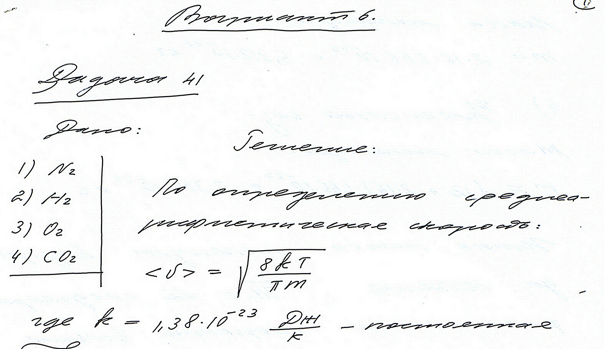 Вариант 6.
Задача 41
Дано:
Решение:
1) N₂
2) H₂
3) O₂
4) CO₂
По определению среднеа-
рифметическая скорость:
<υ> = √(8kT/πm)
где k = 1,38·10⁻²³ Дж/К – постоянная